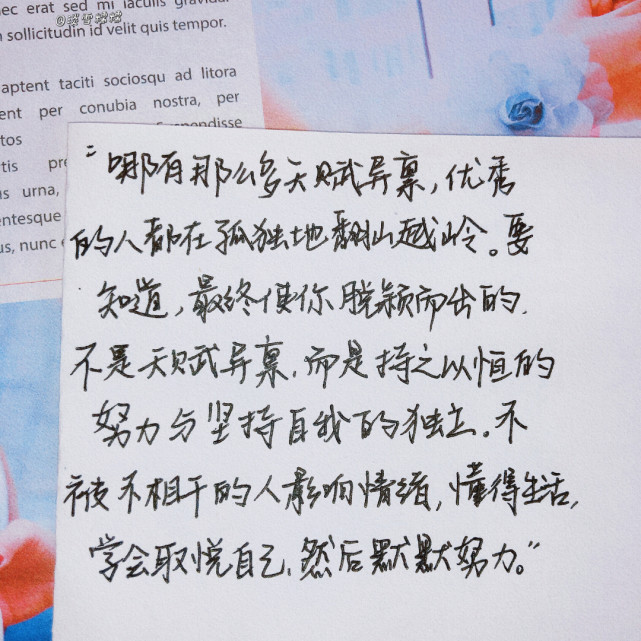 nec erat sed mi iaculis gravida.
sollicitudin id velit quis tempor.
aptent taciti sociosqu ad litora
per conubia nostra, per
Suspendisse
urna,
nunc
“哪有那么多天赋异禀，优秀
的人都在孤独地翻山越岭。要
知道，最终使你脱颖而出的，
不是天赋异禀，而是持之以恒的
努力与坚持自我的独立。不
被不相干的人影响情绪，懂得生活，
学会取悦自己，然后默默努力。”